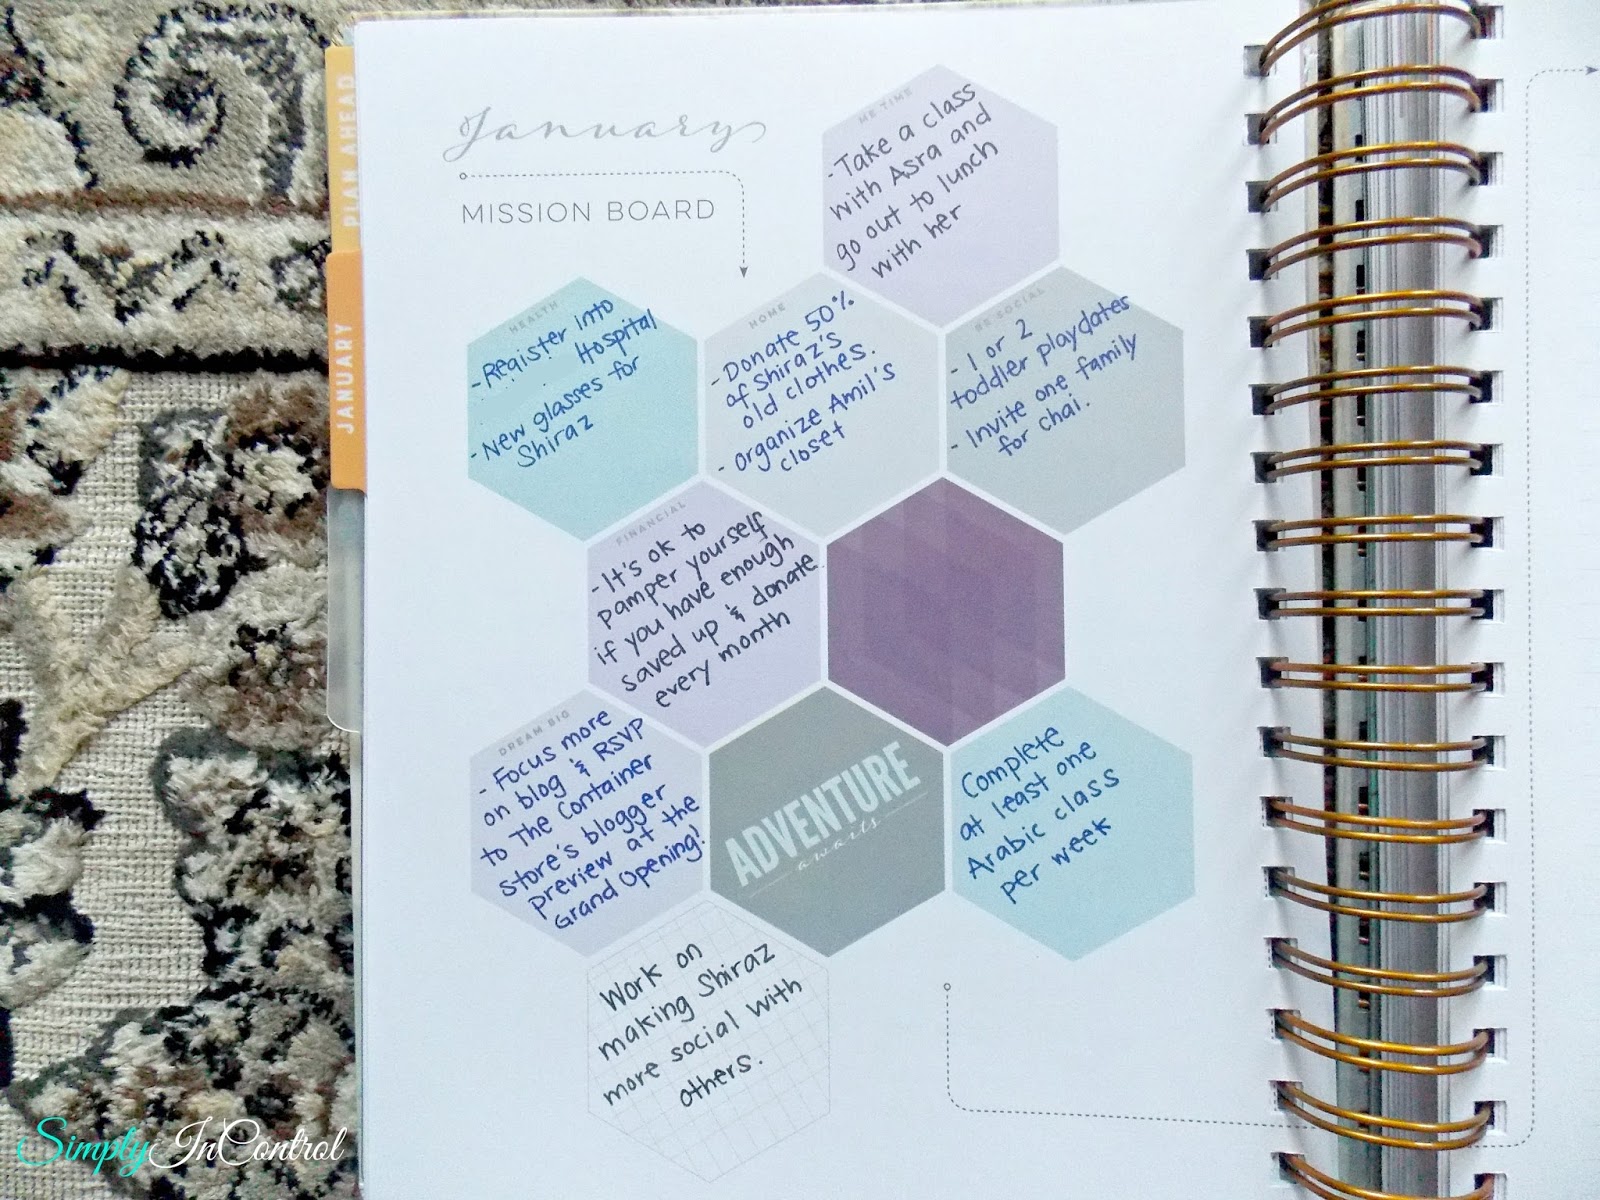 PLAN AHEAD
JANUARY
January
MISSION BOARD
ME TIME
- Take a class
with Asra and
go out to lunch
with her
HEALTH
- Register into
Hospital
- New glasses for
Shiraz
HOME
- Donate 50%
of Shiraz's
old clothes.
- organize Amil's
closet
BE SOCIAL
- 1 or 2
toddler playdates
- Invite one family
for chai.
FINANCIAL
- It's ok to
pamper yourself
if you have enough
saved up & donate
every month
DREAM BIG
- Focus more
on blog & RSVP
to The Container
Store's blogger
preview at the
Grand Opening!
ADVENTURE
awaits
Complete
at least one
Arabic class
per week
Work on
making Shiraz
more social with
others.
SimplyInControl